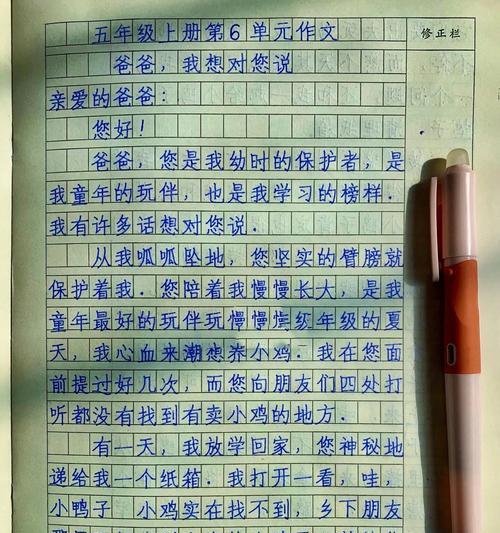 五年级上册第6单元作文
修正栏
爸爸，我想对您说
亲爱的爸爸：
您好！
爸爸，您是我幼时的保护者，是
我童年的玩伴，也是我学习的榜样．
我有许多话想对您说．
从我呱呱坠地，您坚实的臂膀就
保护着我．您陪着我慢慢长大，是我
童年最好的玩伴玩慢慢级年级的夏
天，我心血来潮想养小鸡．我在您面
前提过好几次，而您向朋友们四处打
听都没有找到有卖小鸡的地方．
有一天，我放学回家，您神秘地
递给我一个纸箱．我打开一看，哇，
小鸭子 小鸡实在找不到，乡下朋友